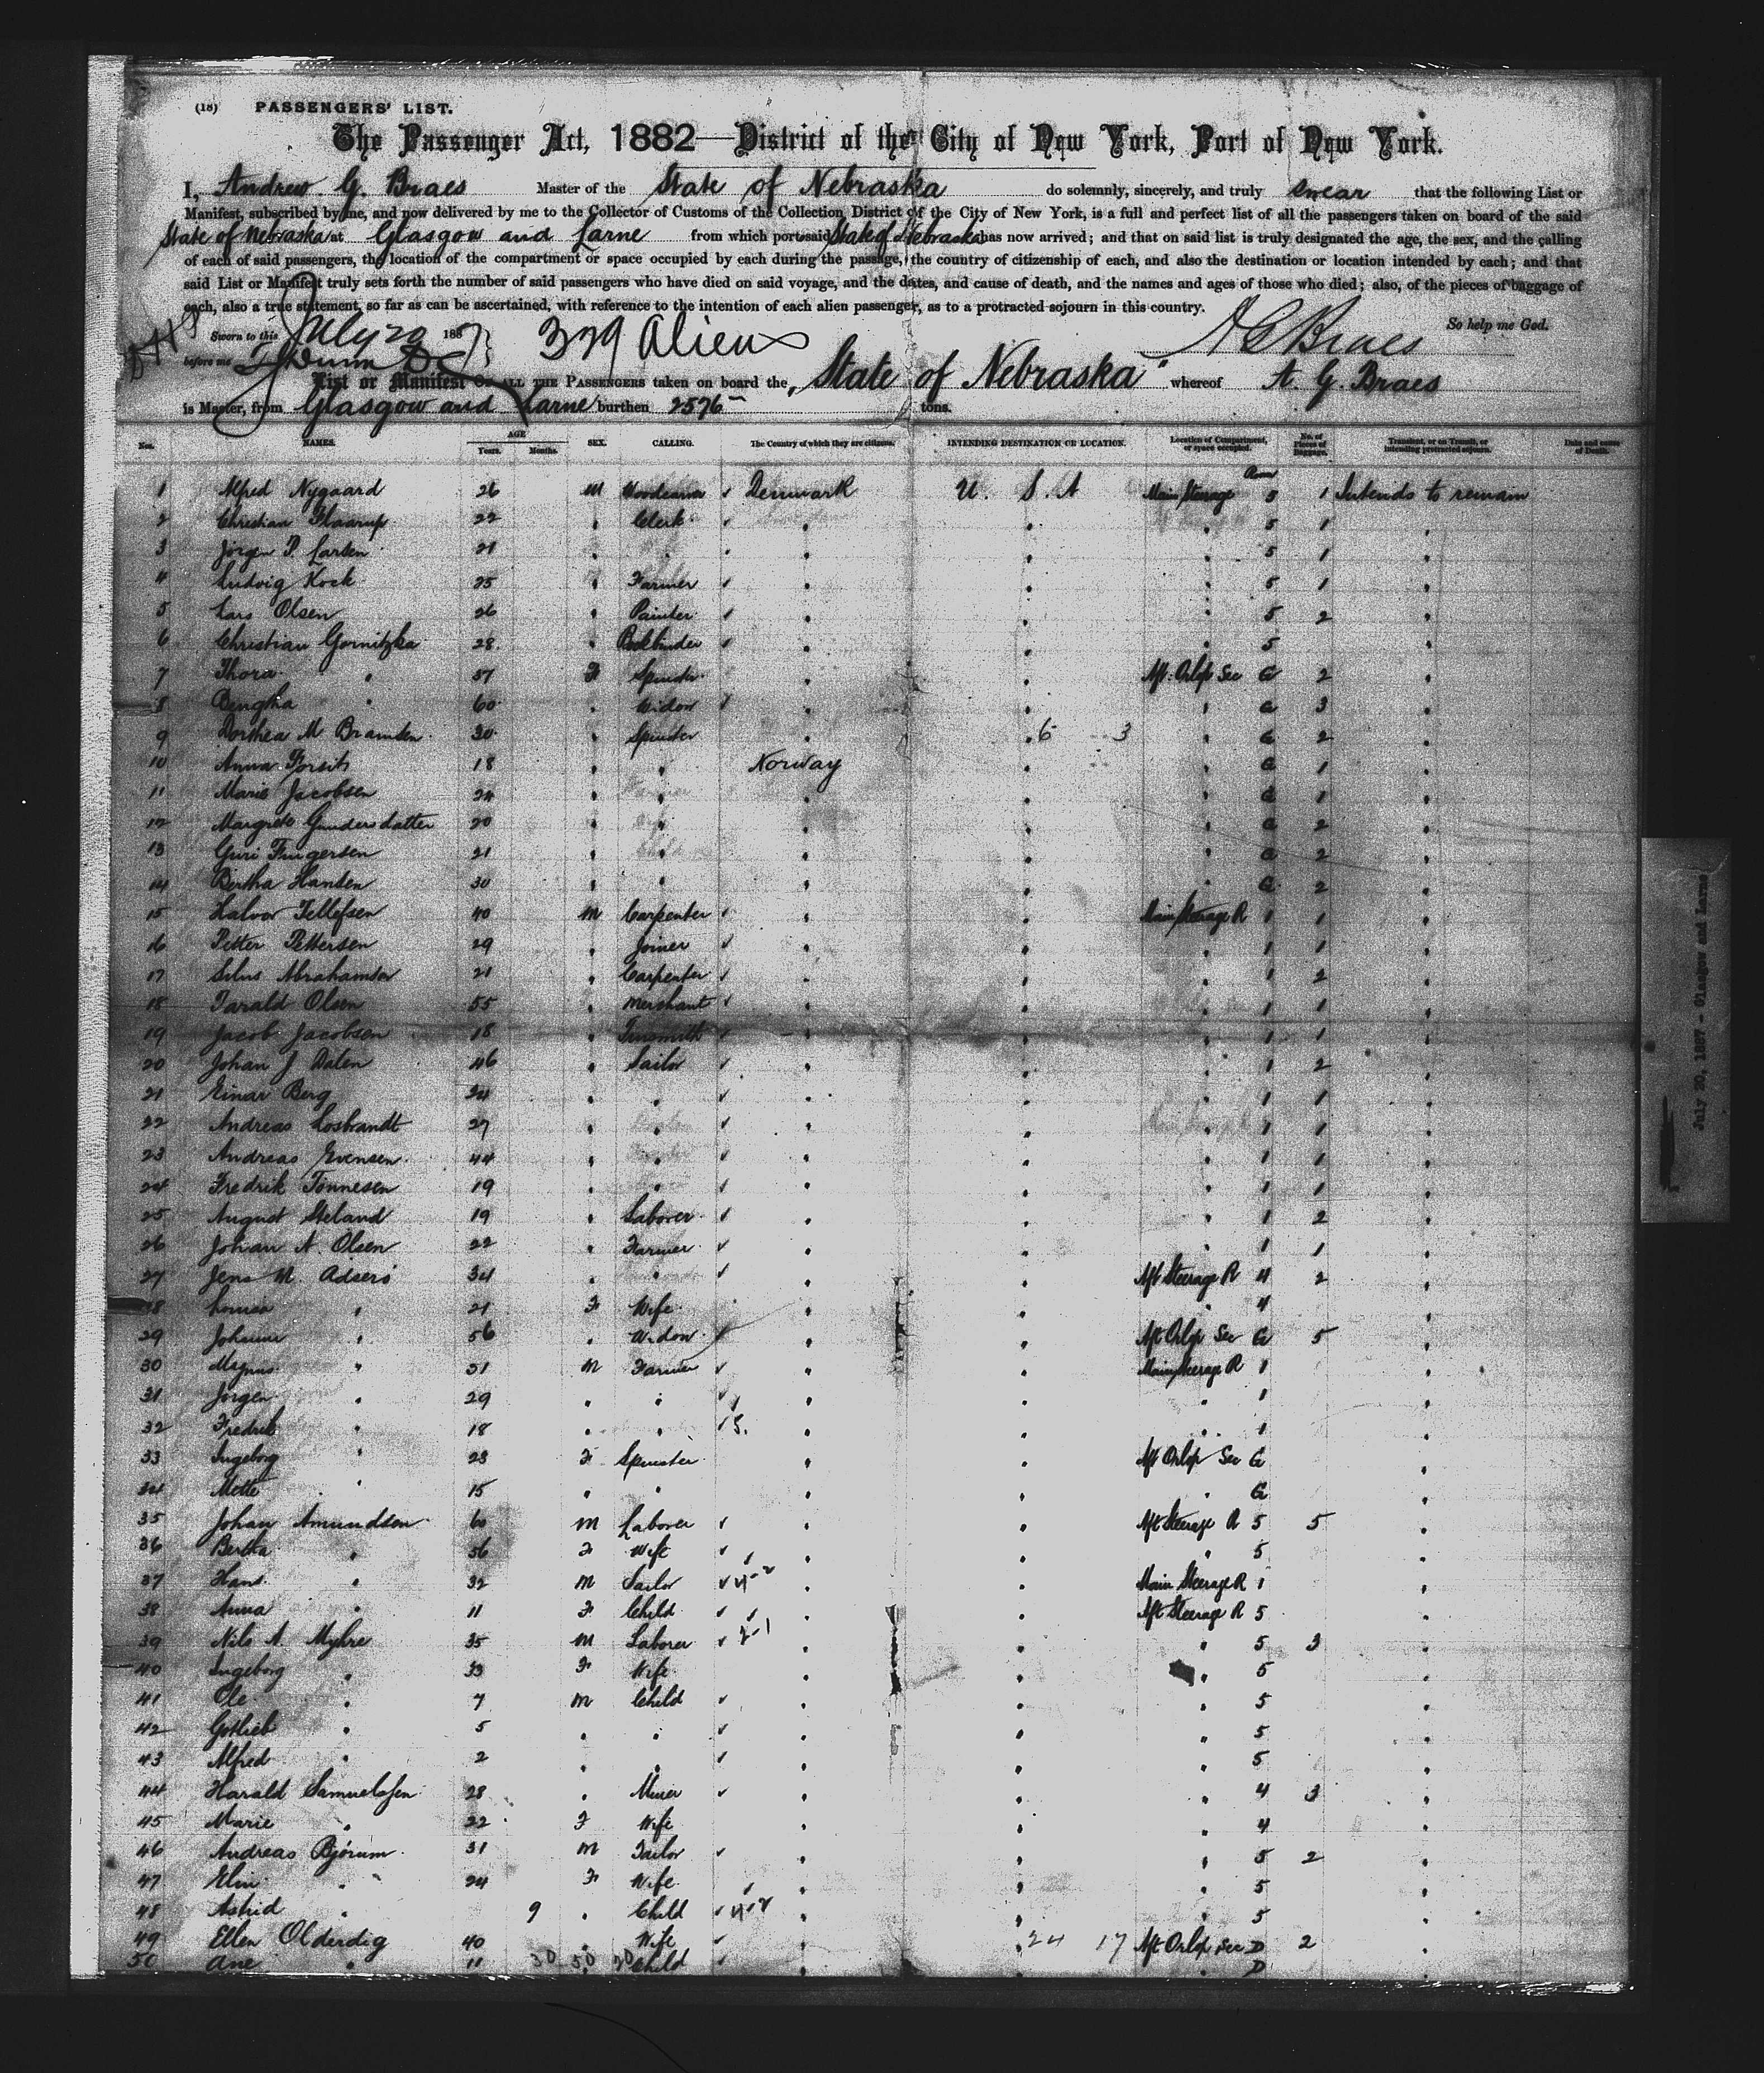 (18) PASSENGERS' LIST.
The Passenger Act, 1882—District of the City of New York, Port of New York.
I, Andrew G. Braes Master of the State of Nebraska do solemnly, sincerely, and truly swear that the following List or
Manifest, subscribed by me, and now delivered by me to the Collector of Customs of the Collection District of the City of New York, is a full and perfect list of all the passengers taken on board of the said
State of Nebraska at Glasgow and Larne from which port said State of Nebraska has now arrived; and that on said list is truly designated the age, the sex, and the calling
of each of said passengers, the location of the compartment or space occupied by each during the passage, the country of citizenship of each, and also the destination or location intended by each; and that
said List or Manifest truly sets forth the number of said passengers who have died on said voyage, and the dates, and cause of death, and the names and ages of those who died; also, of the pieces of baggage of
each, also a true statement, so far as can be ascertained, with reference to the intention of each alien passenger, as to a protracted sojourn in this country.
So help me God.
Sworn to this July 20 1887 329 Aliens A G Braes
before me
List or Manifest OF ALL THE PASSENGERS taken on board the "State of Nebraska" whereof A. G. Braes
is Master, from Glasgow and Larne burthen 2576 tons.
Nos. NAMES. AGE Years. Months. SEX. CALLING. The Country of which they are citizens. INTENDING DESTINATION OR LOCATION. Location of Compartment, or space occupied. No. of Pieces of Baggage. Transient, or in Transit, or intending protracted sojourn. Date and cause of Death.
Room
1 Alfred Nygaard 26 M Denmark U. S. A Main Steerage 5 1 Intends to remain
2 Christian 22 " Clerk " " " 5 1 "
3 Jörgen P. Larsen 21 " " " " " 5 1 "
4 Ludvig Kock 25 " Farmer " " " 5 1 "
5 Lars Olsen 26 " Painter " " " 5 2 "
6 Christian Gornitzka 28 " " " " 5 "
7 Thora " 57 F Spinster " " Aft. Orlop Sec G 2 "
8 " 60 " Widow " " " G 3 "
9 Dorthea M 30 " Spinster " " 6 3 " G 2 "
10 Anna 18 " " Norway " " G 1 "
11 Marie Jacobsen 24 " " " " " G 1 "
12 Margrete Gundersdatter 20 " " " " " G 2 "
13 Guri 21 " " " " " G 2 "
14 Bertha Hansen 30 " " " " " G 2 "
15 Halvor Tellefsen 40 M Carpenter " " Main Steerage R 1 1 "
16 Petter Pettersen 29 " Joiner " " " 1 1 "
17 Abrahamsen 21 " Carpenter " " " 1 2 "
18 Tarald Olsen 55 " Merchant " " " 1 1 "
19 Jacob Jacobsen 18 " Tinsmith " " " 1 1 "
20 Johan J Dalen 46 " Sailor " " " 1 2 "
21 Einar Berg 24 " " " " " 1 1 "
22 Andreas Losbrandt 27 " " " " " 1 1 "
23 Andreas Evensen 44 " " " " " 1 1 "
24 Fredrik Tönnesen 19 " " " " " 1 1 "
25 August 19 " Laborer " " " 1 2 "
26 Johan A. Olsen 22 " Farmer " " " 1 1 "
27 Jens M. Adsers 34 " " " " Aft Steerage R 4 2 "
28 Louisa " 21 F Wife " " " 4 "
29 Johanne " 56 " Widow " " Aft Orlop Sec G 5 "
30 Magnus " 31 M Farmer " " Main Steerage R 1 "
31 Jörgen " 29 " " " " " 1 "
32 Fredrik " 18 " " " " " 1 "
33 Ingeborg " 23 F Spinster " " Aft Orlop Sec G "
34 Mette " 15 " " " " " G "
35 Johan Amundsen 60 M Laborer " " Aft Steerage R 5 5 "
36 Bertha " 56 F Wife " " " 5 "
37 Hans " 32 M Sailor " " Main Steerage R 1 "
38 Anna " 11 F Child " " Aft Steerage R 5 "
39 Nils A. Myhre 35 M Laborer " " " 5 3 "
40 Ingeborg " 33 F Wife " " " 5 "
41 Ole " 7 M Child " " " 5 "
42 Gotlieb " 5 " " " " " 5 "
43 Alfred " 2 " " " " " 5 "
44 Harald Samuelsen 28 " Miner " " " 4 3 "
45 Marie " 22 F Wife " " " 4 "
46 Andreas Bjórum 31 M Tailor " " " 5 2 "
47 Elin " 24 F Wife " " " 5 "
48 Astrid " 9 " Child " " " 5 "
49 Ellen Olderdig 40 " Wife " " 24 17 Aft Orlop Sec D 2 "
50 Ane " 11 30 50 20 Child " D "
July 20, 1887 - Glasgow and Larne